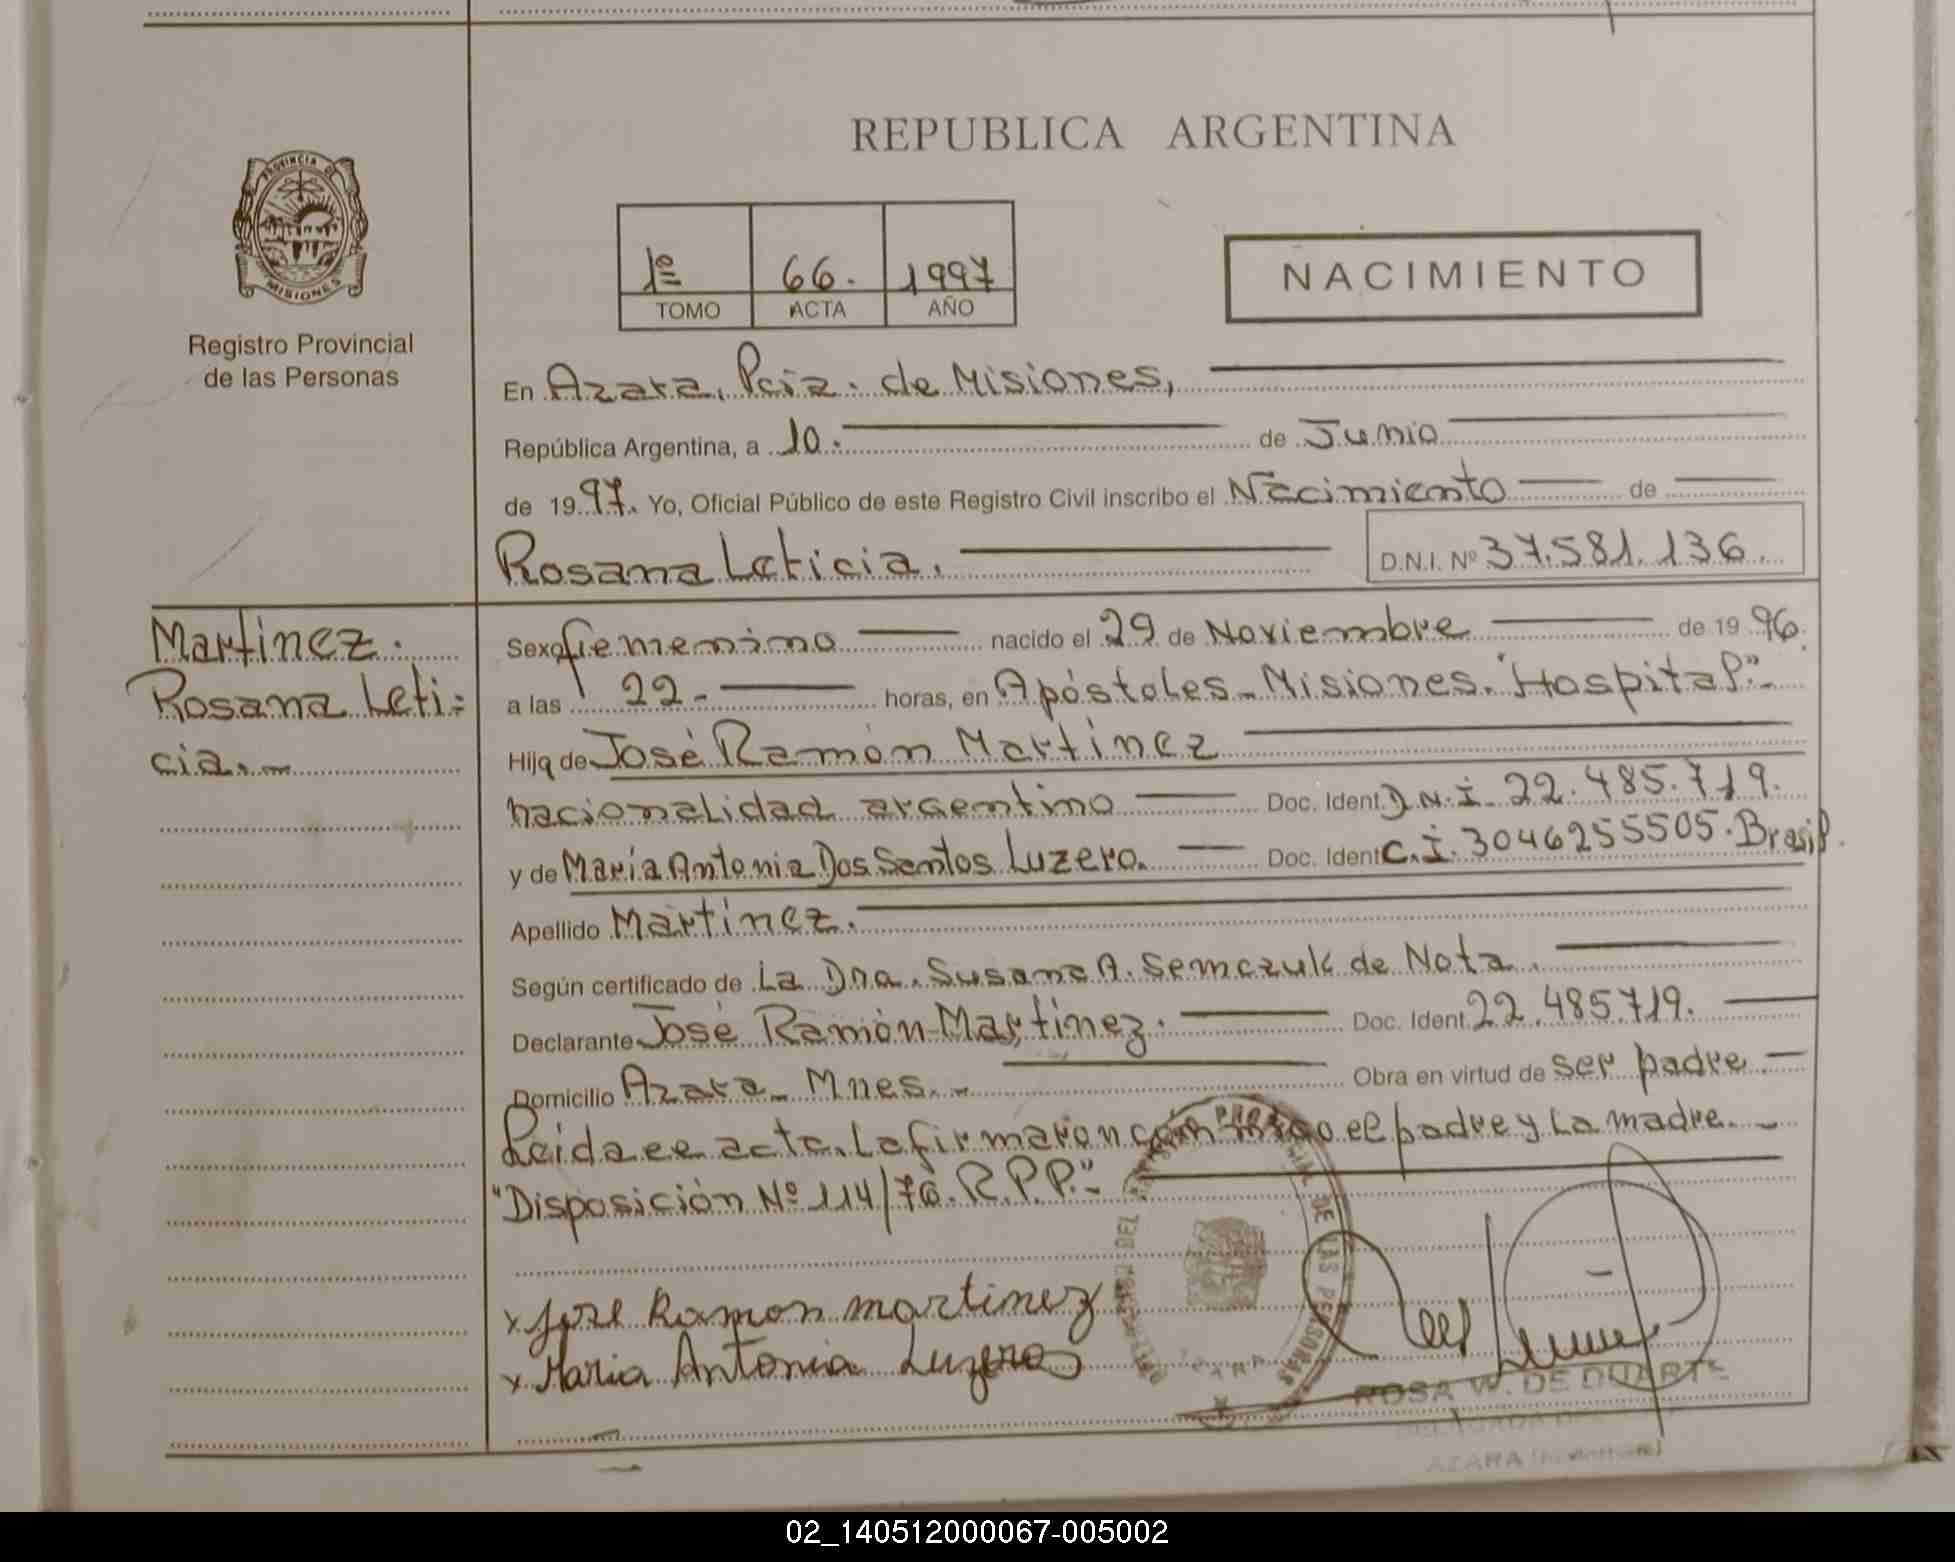 REPUBLICA ARGENTINA
PROVINCIA DE
MISIONES
Registro Provincial
de las Personas
1º 66. 1997
TOMO ACTA AÑO
NACIMIENTO
En Azara, Pcia. de Misiones,
República Argentina, a 10. de Junio
de 1997. Yo, Oficial Público de este Registro Civil inscribo el Nacimiento de
Rosana Leticia. D.N.I. Nº 37.581.136.
Martinez.
Rosana Leti-
cia.-
Sexo femenino nacido el 29 de Noviembre de 1996.
a las 22- horas, en Apóstoles-Misiones."Hospital".-
Hija de José Ramón Martinez
nacionalidad argentino Doc. Ident. D.N.I. 22.485.719.
y de María Antonia Dos Santos Luzero. Doc. Ident C.I. 3046255505. Brasil.
Apellido Martinez.
Según certificado de La Dra. Susana A. Semczuk de Nota.
Declarante José Ramón Martinez. Doc. Ident. 22.485719.
Domicilio Azara- Mnes.- Obra en virtud de ser padre.-
Leida el acta, La firmaron conmigo el padre y La madre.-
"Disposición Nº 114/76. R.P.P."-
x José Ramon martinez
x Maria Antonia Luzero
PROVINCIAL DE LAS PERSONAS
AZARA
ROSA W. DE DUARTE
AZARA
02_140512000067-005002